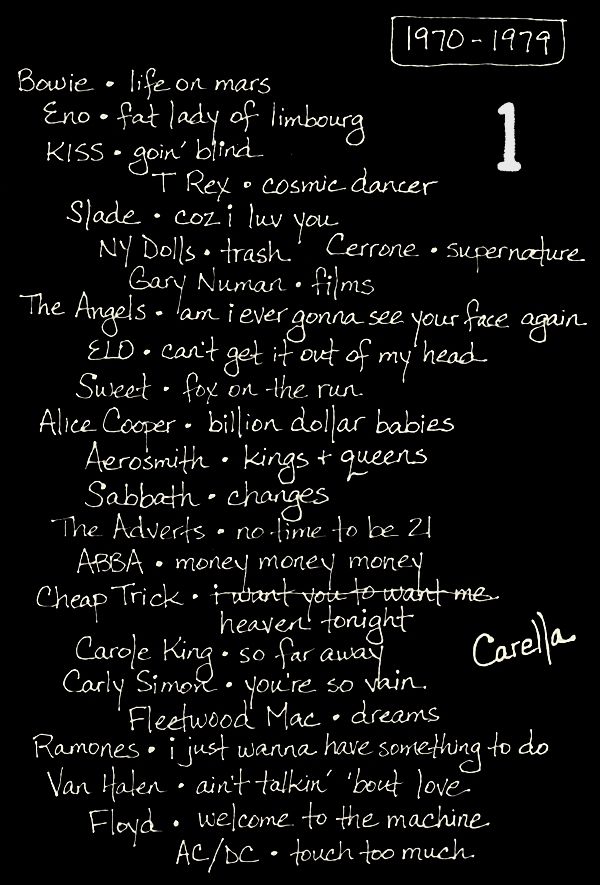 1970-1979
1
Bowie • life on mars
Eno • fat lady of limbourg
KISS • goin' blind
T Rex • cosmic dancer
Slade • coz i luv you
NY Dolls • trash Cerrone • supernature
Gary Numan • films
The Angels • am i ever gonna see your face again
ELO • can't get it out of my head
Sweet • fox on the run
Alice Cooper • billion dollar babies
Aerosmith • kings + queens
Sabbath • changes
The Adverts • no time to be 21
ABBA • money money money
Cheap Trick • i want you to want me
heaven tonight
Carole King • so far away
Carella
Carly Simon • you're so vain
Fleetwood Mac • dreams
Ramones • i just wanna have something to do
Van Halen • ain't talkin' 'bout love
Floyd • welcome to the machine
AC/DC • touch too much